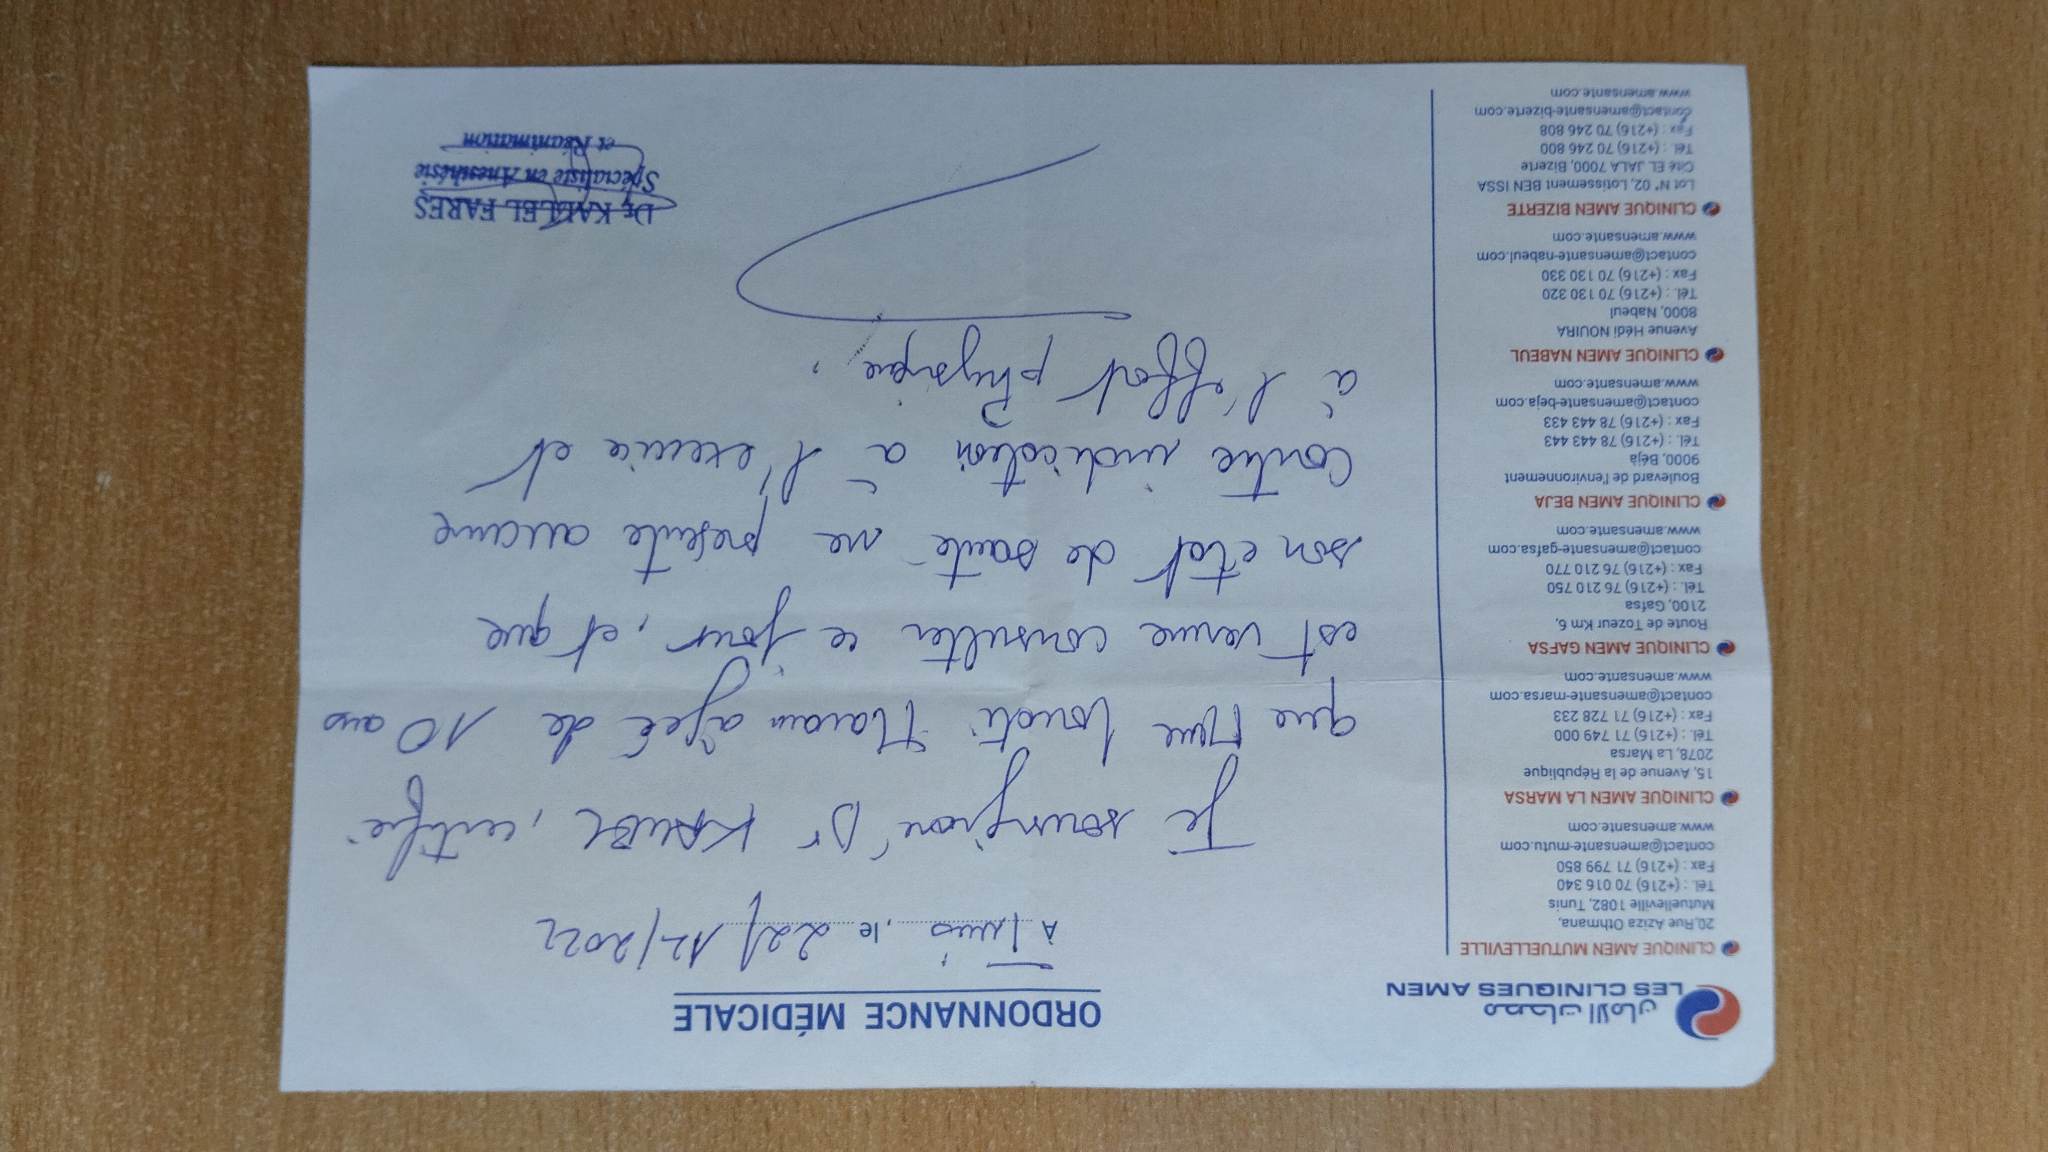 مصحات الأمان
LES CLINIQUES AMEN
CLINIQUE AMEN MUTUELLEVILLE
20,Rue Aziza Othmana,
Mutuelleville 1082, Tunis
Tél. : (+216) 70 016 340
Fax : (+216) 71 799 850
contact@amensante-mutu.com
www.amensante.com
CLINIQUE AMEN LA MARSA
15, Avenue de la République
2078, La Marsa
Tél. : (+216) 71 749 000
Fax : (+216) 71 728 233
contact@amensante-marsa.com
www.amensante.com
CLINIQUE AMEN GAFSA
Route de Tozeur Km 6,
2100, Gafsa
Tél. : (+216) 76 210 750
Fax : (+216) 76 210 770
contact@amensante-gafsa.com
www.amensante.com
CLINIQUE AMEN BEJA
Boulevard de l'environnement
9000, Béjà
Tél. : (+216) 78 443 443
Fax : (+216) 78 443 433
contact@amensante-beja.com
www.amensante.com
CLINIQUE AMEN NABEUL
Avenue Hédi NOUIRA
8000, Nabeul
Tél. : (+216) 70 130 320
Fax : (+216) 70 130 330
contact@amensante-nabeul.com
www.amensante.com
CLINIQUE AMEN BIZERTE
Lot N° 02, Lotissement BEN ISSA
Cité EL JALA 7000, Bizerte
Tél. : (+216) 70 246 800
Fax : (+216) 70 246 808
contact@amensante-bizerte.com
www.amensante.com
ORDONNANCE MÉDICALE
À Tunis, le 22/12/2022
Je soussigné Dr KALLEL, certifie
que Mme Maram agée de 10 ans
est venue consulter ce jour, et que
son etat de santé ne présente aucune
contre indication à l'exercice et
à l'effort physique.
Dr KALLEL FARES
Spécialiste en Anesthésie
et Réanimation